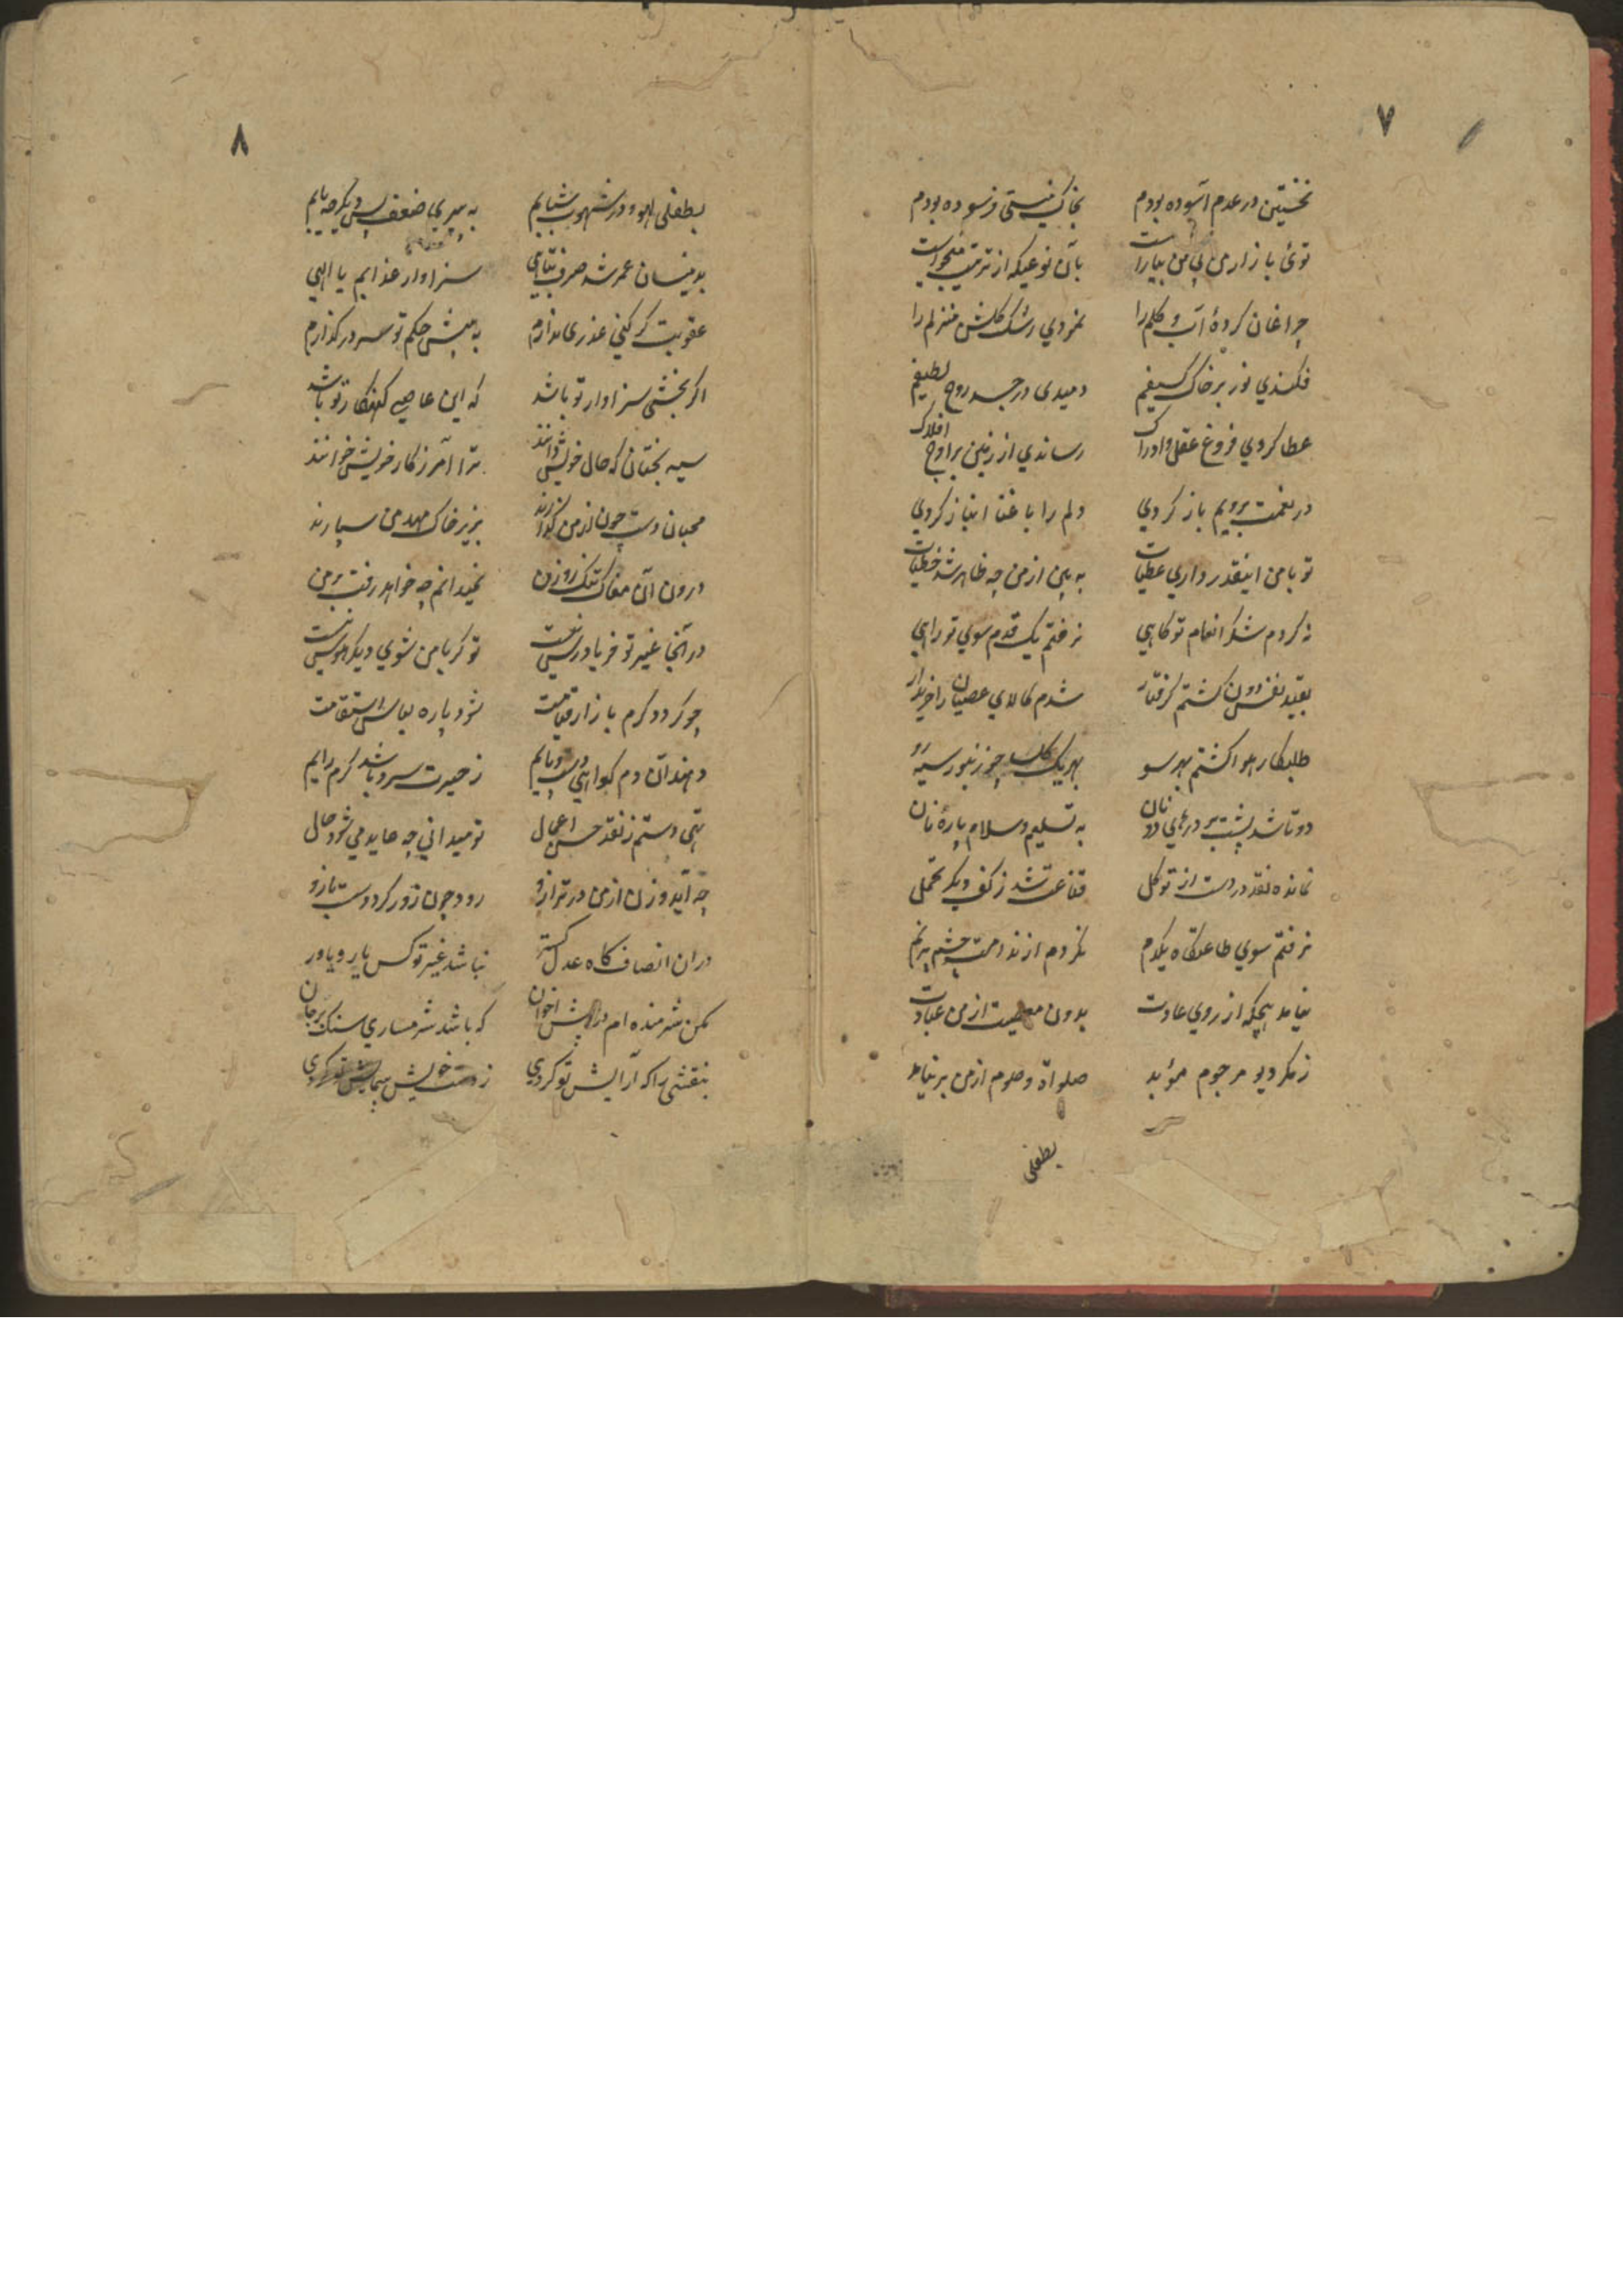 ۷
نخستین در عدم آسوده بودم بخاک نیستی فرسوده بودم
توئی بازار من بی من بیاراست بآن نوعیکه از ترتیب میخواست
چراغان کردهٔ آب و گلم را نمودی رشک گلشن منزلم را
فکندی نور بر خاک کثیفم دمیدی در جسد روح لطیفم
عطا کردی فروغ عقل و ادراک رساندی از زمین بر اوج افلاک
در نعمت برویم باز کردی دلم را با غنا انباز کردی
تو با من اینقدر داری عطیات به بین از من چه ظاهر شد خطیات
نه کردم شکر انعام تو گاهی نرفتم یک قدم سوی تو راهی
بقید نفس دون گشتم گرفتار شدم کالای عصیان را خریدار
طلبکار هوا گشتم بهر سو بهر یک کاسه چوزنبور سیه رو
دو تا شد پشت بر درهای دونان به تسلیم و سلام پارهٔ نان
نمانده نقد در دست از توکل قناعت شد ز کف دیگر تحمل
نرفتم سوی طاعتگاه یکدم نکردم از ندامت چشم پرنم
نیامد هیچگه از روی عادت بدون معصیت از من عبادت
ز مکر دیو مرجوم مؤبد صلواة و صوم از من بر نیامد
بطفلی
۸
بطفلی لهو و در شهوت شبابم به پیری ضعف پس دیگر چه یابم
بدینسان عمر شد صرف تباهی سزاوار عذابم یا الهی
عقوبت گر کنی عذری ندارم به پیش حکم تو سر در گذارم
اگر بخشی سزاوار تو باشد که این عاصی گنهکار تو باشد
سیه بختان که حال خویش دانند ترا آمرزگار خویش خوانند
محبان دست چون از من گذارند بزیر خاک مهد من سپارند
درون آن مغاک تنگ روزن نمیدانم چه خواهد رفت بر من
در آنجا غیر تو فریادرس نیست تو گر با من شوی دیگر هوس نیست
چو گردد گرم بازار قیامت شود پاره لباس استقامت
دهند آن دم گواهی دست و پایم ز حیرت سرد باشد گرم رایم
تهی دستم ز نقد حسن اعمال تو میدانی چه عاید می شود حال
چه آید وزن از من در ترازو رود چون زور گردد دست بازو
در ان انصاف گاه عدل گستر نباشد غیر تو کس یار و یاور
مکن شرمنده ام در پیش اخوان که باشد شرمساری سنک بر جان
بنقشی را که آرایش تو کردی ز دست خویش پیمایش تو کردی